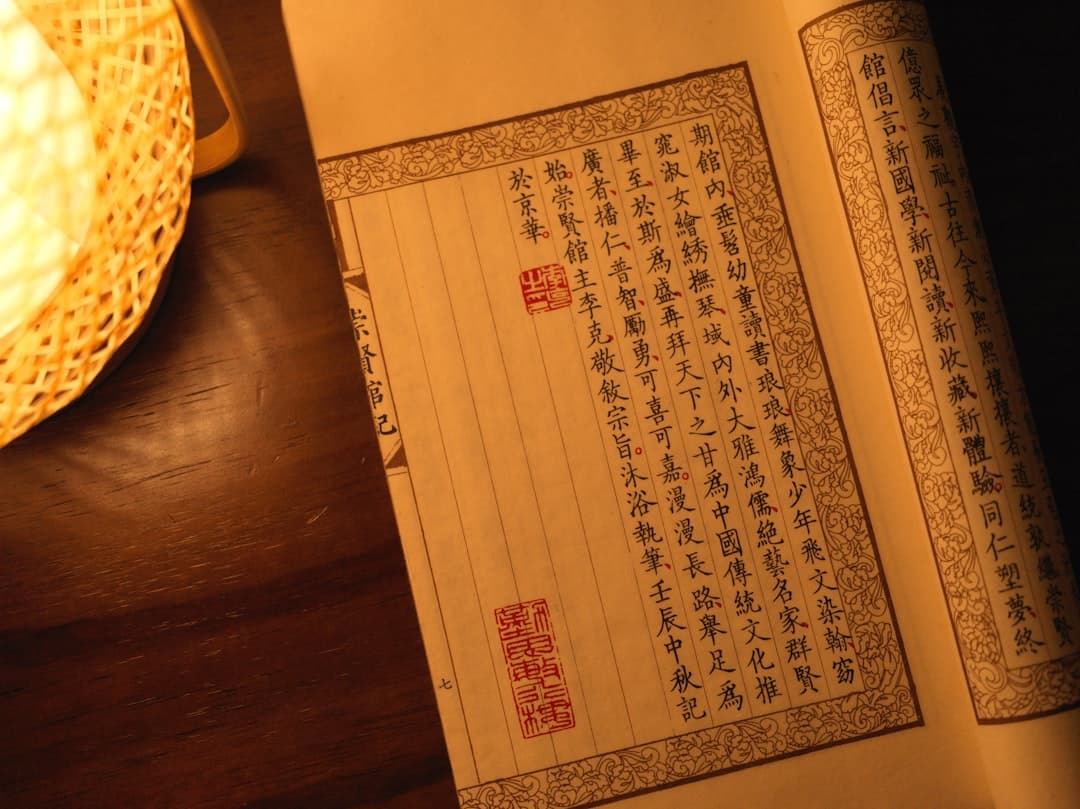 億眾之福祉、古往今來、熙熙攘攘者、道統敦繼、崇賢
館倡言、新國學、新閱讀、新收藏、新體驗。同仁塑夢、終
期館內、垂髫幼童讀書琅琅、舞象少年飛文染翰、窈
窕淑女繪綉撫琴、域內外大雅鴻儒、絕藝名家、群賢
畢至、於斯為盛、再拜天下之甘為中國傳統文化推
廣者、播仁、普智、勵勇、可喜可嘉。漫漫長路、舉足為
始。崇賢館主李克、敬敘宗旨。沐浴執筆、壬辰中秋記
於京華。
崇賢館記
七